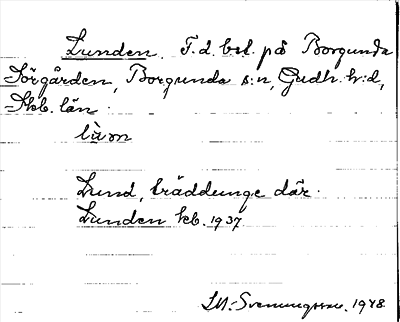 Lunden. F.d. bst. på Borgunda
Sörgården, Borgunda s:n, Gudh. h:d,
Skb. län.
lùn
Lund, träddunge där.
Lunden kb. 1937
S.M. Svenungsson. 1948